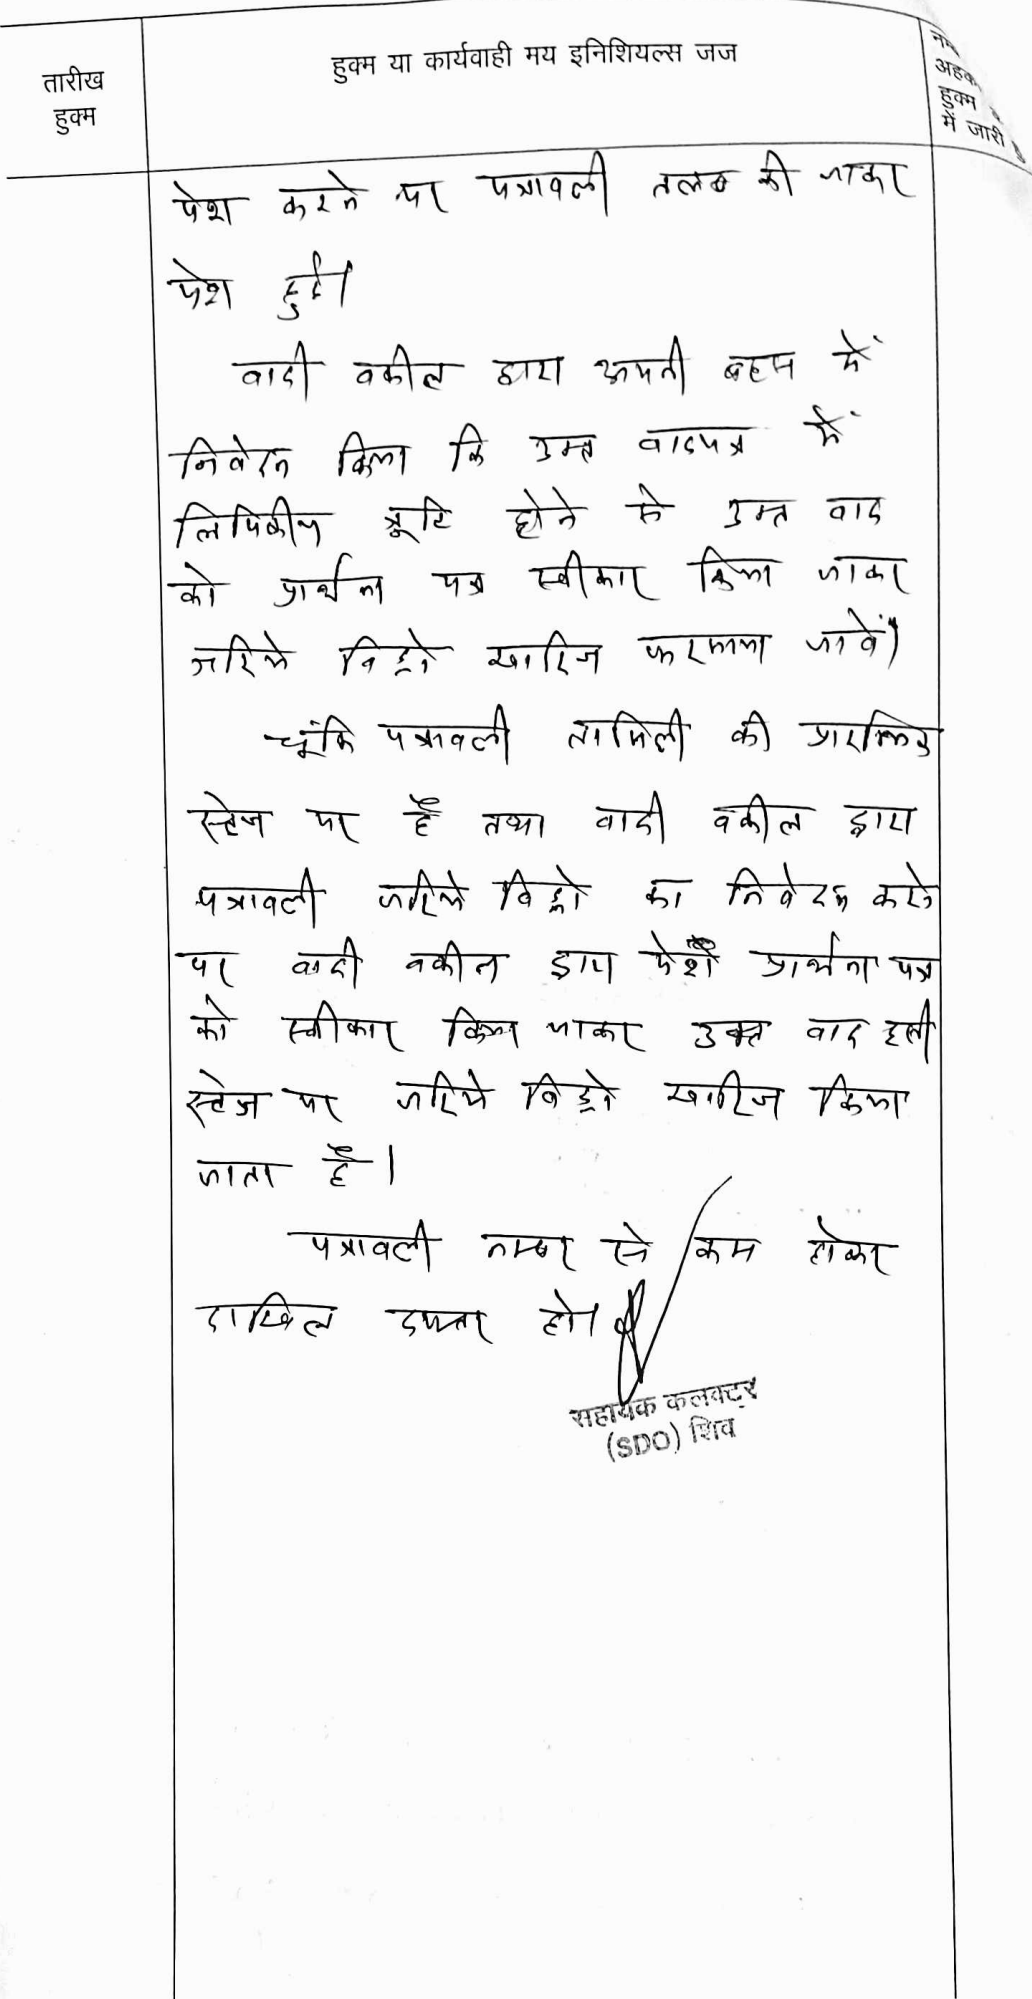 तारीख
हुक्म
हुक्म या कार्यवाही मय इनिशियल्स जज
अहक
हुक्म
में जारी
पेश करने पर पत्रावली तलब की जाकर
पेश हुई।
वादी वकील द्वारा अपनी बहस में
निवेदन किया कि उक्त वादपत्र में
लिपिकीय त्रूटि होने से उक्त वाद
को प्रार्थना पत्र स्वीकार किया जाकर
जरिये विड्रो खारिज फरमाया जावें।
चूंकि पत्रावली तामिली की प्रारम्भिक
स्टेज पर है तथा वादी वकील द्वारा
पत्रावली जरिये विड्रो का निवेदन करने
पर वादी वकील द्वारा पेश प्रार्थना पत्र
को स्वीकार किया जाकर उक्त वाद इसी
स्टेज पर जरिये विड्रो खारिज किया
जाता है।
पत्रावली नम्बर से कम होकर
दाखिल दफ्तर हो।
सहायक कलक्टर
(SDO) शिव